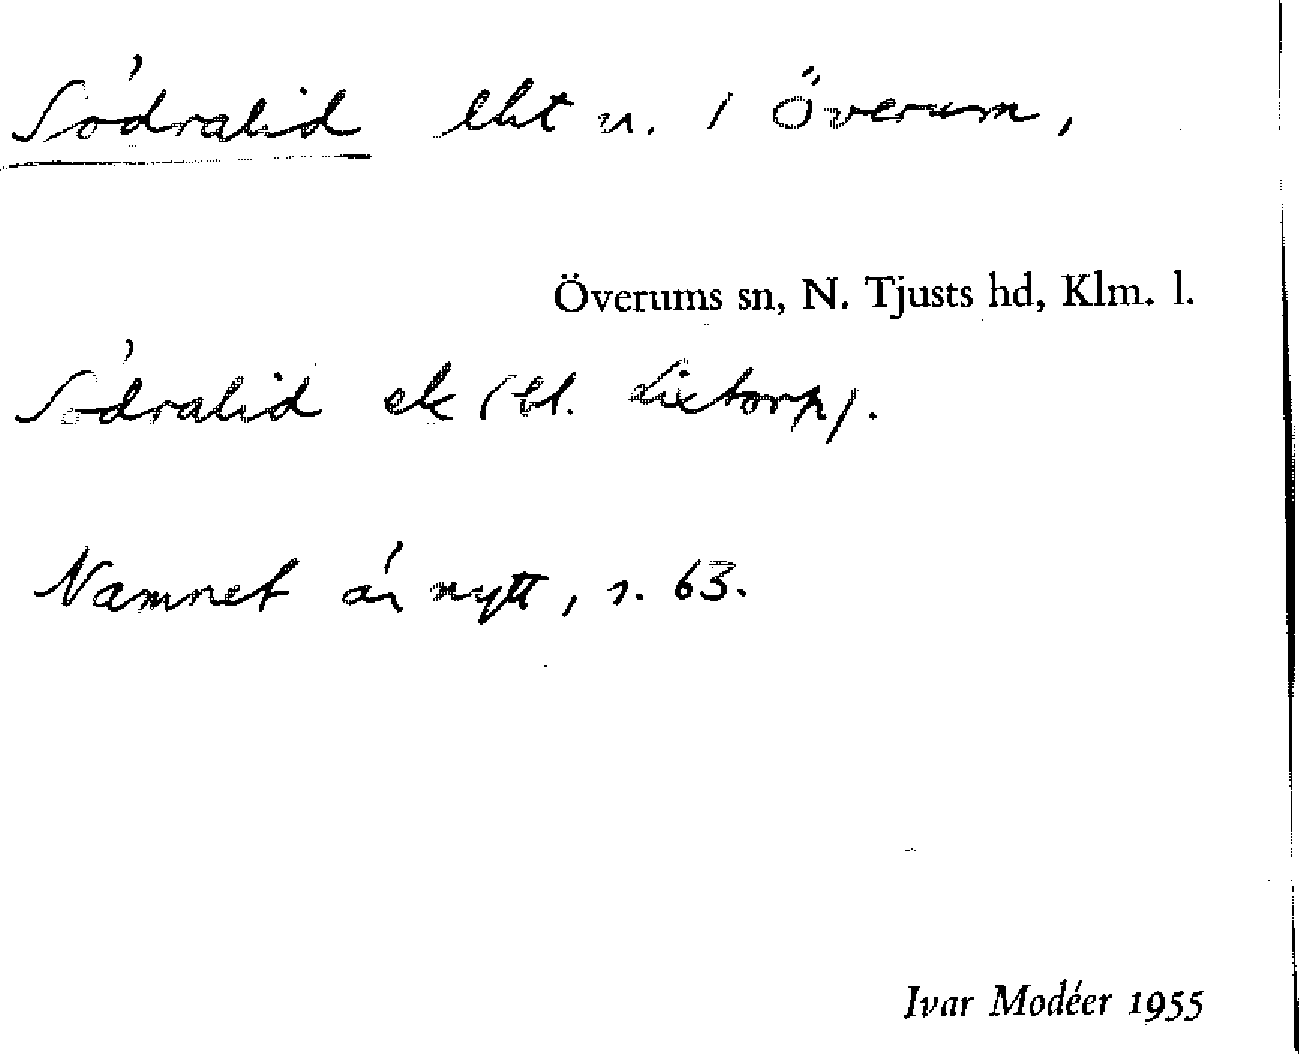 Södralid lht u. / Överum,
Överums sn, N. Tjusts hd, Klm. l.
Södralid ek (bl. Lixtorp).
Namnet är nytt, s. 63.
Ivar Modéer 1955